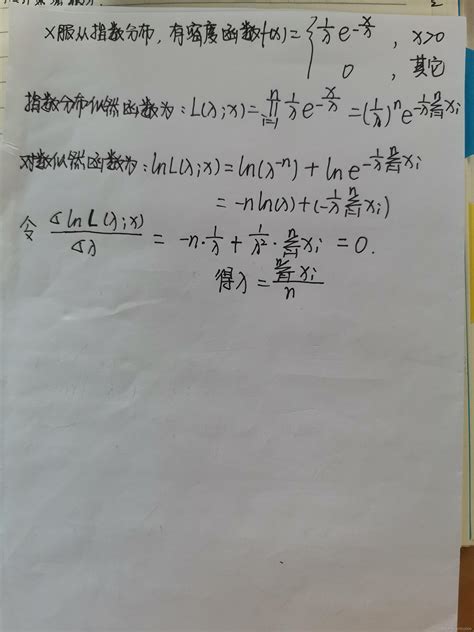 X服从指数分布,有密度函数f(x)={ 1/λ e^{-x/λ}, x>0
0, 其它
指数分布似然函数为:L(λ;x)=∏_{i=1}^{n} 1/λ e^{-x/λ}=(1/λ)^n e^{-1/λ ∑_{i=1}^{n} xi}
对数似然函数为:lnL(λ;x)=ln(λ^{-n})+ln e^{-1/λ ∑_{i=1}^{n} xi}
=-n ln(λ)+(-1/λ ∑_{i=1}^{n} xi)
令 ∂lnL(λ;x)/∂λ = -n·1/λ + 1/λ²·∑_{i=1}^{n} xi = 0.
得λ = ∑_{i=1}^{n} xi / n